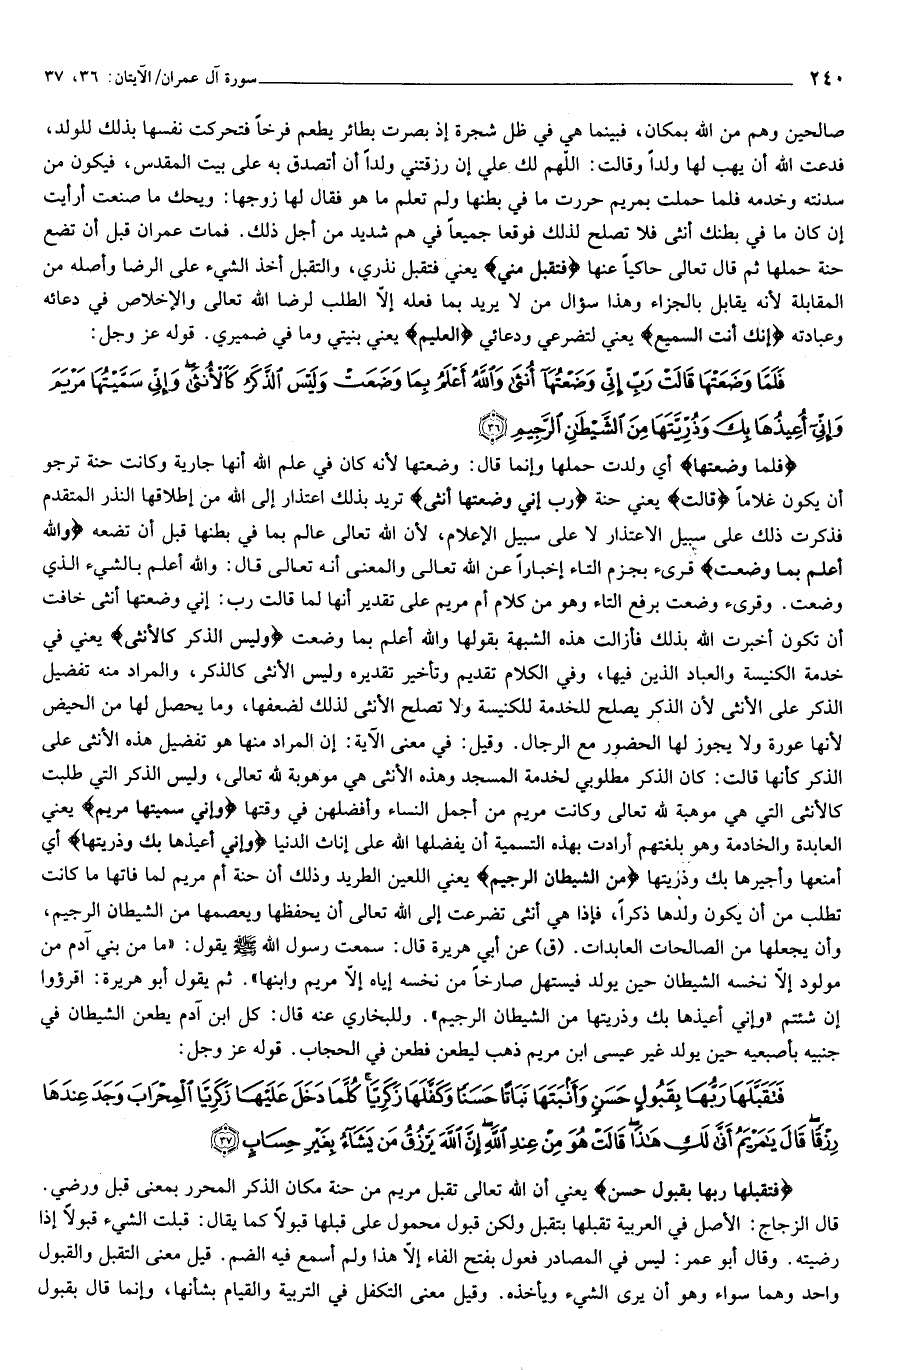 ٢٤٠ سورة آل عمران/ الآيتان: ٣٦، ٣٧
صالحين وهم من الله بمكان، فبينما هي في ظل شجرة إذ بصرت بطائر يطعم فرخاً فتحركت نفسها بذلك للولد،
فدعت الله أن يهب لها ولداً وقالت: اللّهم لك علي إن رزقتني ولداً أن أتصدق به على بيت المقدس، فيكون من
سدنته وخدمه فلما حملت بمريم حررت ما في بطنها ولم تعلم ما هو فقال لها زوجها: ويحك ما صنعت أرأيت
إن كان ما في بطنك أنثى فلا تصلح لذلك فوقعا جميعاً في هم شديد من أجل ذلك. فمات عمران قبل أن تضع
حنة حملها ثم قال تعالى حاكياً عنها ﴿فتقبل مني﴾ يعني فتقبل نذري، والتقبل أخذ الشيء على الرضا وأصله من
المقابلة لأنه يقابل بالجزاء وهذا سؤال من لا يريد بما فعله إلاّ الطلب لرضا الله تعالى والإخلاص في دعائه
وعبادته ﴿إنك أنت السميع﴾ يعني لتضرعي ودعائي ﴿العليم﴾ يعني بنيتي وما في ضميري. قوله عز وجل:
فَلَمَّا وَضَعَتْهَا قَالَتْ رَبِّ إِنِّي وَضَعْتُهَآ أُنثَىٰ وَٱللَّهُ أَعْلَمُ بِمَا وَضَعَتْ وَلَيْسَ ٱلذَّكَرُ كَٱلْأُنثَىٰۖ وَإِنِّي سَمَّيْتُهَا مَرْيَمَ
وَإِنِّيٓ أُعِيذُهَا بِكَ وَذُرِّيَّتَهَا مِنَ ٱلشَّيْطَٰنِ ٱلرَّجِيمِ ﴿٣٦﴾
﴿فلما وضعتها﴾ أي ولدت حملها وإنما قال: وضعتها لأنه كان في علم الله أنها جارية وكانت حنة ترجو
أن يكون غلاماً ﴿قالت﴾ يعني حنة ﴿رب إني وضعتها أنثى﴾ تريد بذلك اعتذار إلى الله من إطلاقها النذر المتقدم
فذكرت ذلك على سبيل الاعتذار لا على سبيل الإعلام، لأن الله تعالى عالم بما في بطنها قبل أن تضعه ﴿والله
أعلم بما وضعت﴾ قرىء بجزم التاء إخباراً عن الله تعالى والمعنى أنه تعالى قال: والله أعلم بالشيء الذي
وضعت. وقرىء وضعت برفع التاء وهو من كلام أم مريم على تقدير أنها لما قالت رب: إني وضعتها أنثى خافت
أن تكون أخبرت الله بذلك فأزالت هذه الشبهة بقولها والله أعلم بما وضعت ﴿وليس الذكر كالأنثى﴾ يعني في
خدمة الكنيسة والعباد الذين فيها، وفي الكلام تقديم وتأخير تقديره وليس الأنثى كالذكر، والمراد منه تفضيل
الذكر على الأنثى لأن الذكر يصلح للخدمة للكنيسة ولا تصلح الأنثى لذلك لضعفها، وما يحصل لها من الحيض
لأنها عورة ولا يجوز لها الحضور مع الرجال. وقيل: في معنى الآية: إن المراد منها هو تفضيل هذه الأنثى على
الذكر كأنها قالت: كان الذكر مطلوبي لخدمة المسجد وهذه الأنثى هي موهوبة لله تعالى، وليس الذكر التي طلبت
كالأنثى التي هي موهبة لله تعالى وكانت مريم من أجمل النساء وأفضلهن في وقتها ﴿وإني سميتها مريم﴾ يعني
العابدة والخادمة وهو بلغتهم أرادت بهذه التسمية أن يفضلها الله على إناث الدنيا ﴿وإني أعيذها بك وذريتها﴾ أي
أمنعها وأجيرها بك وذريتها ﴿من الشيطان الرجيم﴾ يعني اللعين الطريد وذلك أن حنة أم مريم لما فاتها ما كانت
تطلب من أن يكون ولدها ذكراً، فإذا هي أنثى تضرعت إلى الله تعالى أن يحفظها ويعصمها من الشيطان الرجيم،
وأن يجعلها من الصالحات العابدات. (ق) عن أبي هريرة قال: سمعت رسول الله ﷺ يقول: «ما من بني آدم من
مولود إلاّ نخسه الشيطان حين يولد فيستهل صارخاً من نخسه إياه إلاّ مريم وابنها». ثم يقول أبو هريرة: اقرؤوا
إن شئتم «وإني أعيذها بك وذريتها من الشيطان الرجيم». وللبخاري عنه قال: كل ابن آدم يطعن الشيطان في
جنبيه بأصبعيه حين يولد غير عيسى ابن مريم ذهب ليطعن فطعن في الحجاب. قوله عز وجل:
فَتَقَبَّلَهَا رَبُّهَا بِقَبُولٍ حَسَنٍ وَأَنۢبَتَهَا نَبَاتًا حَسَنًا وَكَفَّلَهَا زَكَرِيَّاۖ كُلَّمَا دَخَلَ عَلَيْهَا زَكَرِيَّا ٱلْمِحْرَابَ وَجَدَ عِندَهَا
رِزْقًاۖ قَالَ يَٰمَرْيَمُ أَنَّىٰ لَكِ هَٰذَاۖ قَالَتْ هُوَ مِنْ عِندِ ٱللَّهِۖ إِنَّ ٱللَّهَ يَرْزُقُ مَن يَشَآءُ بِغَيْرِ حِسَابٍ ﴿٣٧﴾
﴿فتقبلها ربها بقبول حسن﴾ يعني أن الله تعالى تقبل مريم من حنة مكان الذكر المحرر بمعنى قبل ورضي.
قال الزجاج: الأصل في العربية تقبلها بتقبل ولكن قبول محمول على قبلها قبولاً كما يقال: قبلت الشيء قبولاً إذا
رضيته. وقال أبو عمر: ليس في المصادر فعول بفتح الفاء إلاّ هذا ولم أسمع فيه الضم. قيل معنى التقبل والقبول
واحد وهما سواء وهو أن يرى الشيء ويأخذه. وقيل معنى التكفل في التربية والقيام بشأنها، وإنما قال بقبول